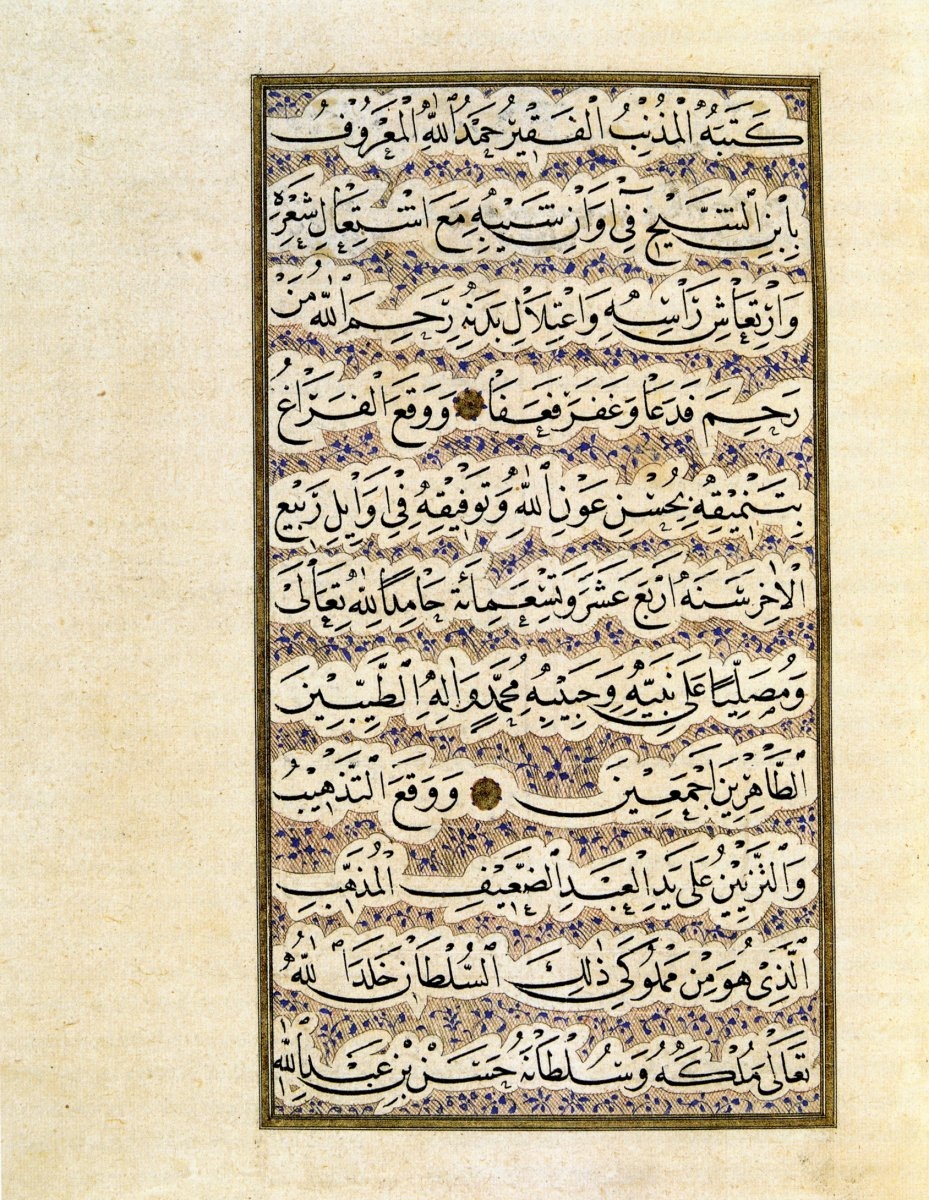 كَتَبَهُ الْمُذْنِبُ الْفَقِيرُ حَمْدُ اللّٰهِ الْمَعْرُوفُ
بِابْنِ الشَّيْخِ فِي اَوَانِ شَيْبِهِ مَعَ اشْتِعَالِ شَعْرِهِ
وَارْتِعَاشِ رَاْسِهِ وَاعْتِلَالِ بَدَنِهِ رَحِمَ اللّٰهُ مَنْ
رَحِمَ فَدَعَا وَغَفَرَ فَعَفَا وَوَقَعَ الْفَرَاغُ
بِتَنْمِيقِهِ بِحُسْنِ عَوْنِ اللّٰهِ وَتَوْفِيقِهِ فِي اَوَايِلِ رَبِيعِ
الْاٰخِرِ سَنَهَ اَرْبَعَ عَشَرَ وَتِسْعَمِائَة حَامِدًا لِلّٰهِ تَعَالَى
وَمُصَلِّيًا عَلَى نَبِيِّهِ وَحَبِيبِهِ مُحَمَّدٍ وَاٰلِهِ الطَّيِّبِينَ
الطَّاهِرِينَ اَجْمَعِينَ وَوَقَعَ التَّذْهِيبُ
وَالتَّزْيِينُ عَلَى يَدِ الْعَبْدِ الضَّعِيفِ الْمُذَهِّبِ
الَّذِي هُوَ مِنْ مَمْلُوكِي ذٰلِكَ السُّلْطَانِ خَلَّدَ اللّٰهُ
تَعَالَى مُلْكَهُ وَسُلْطَانَهُ حَسَنْ بْنِ عَبْدِ اللّٰهِ